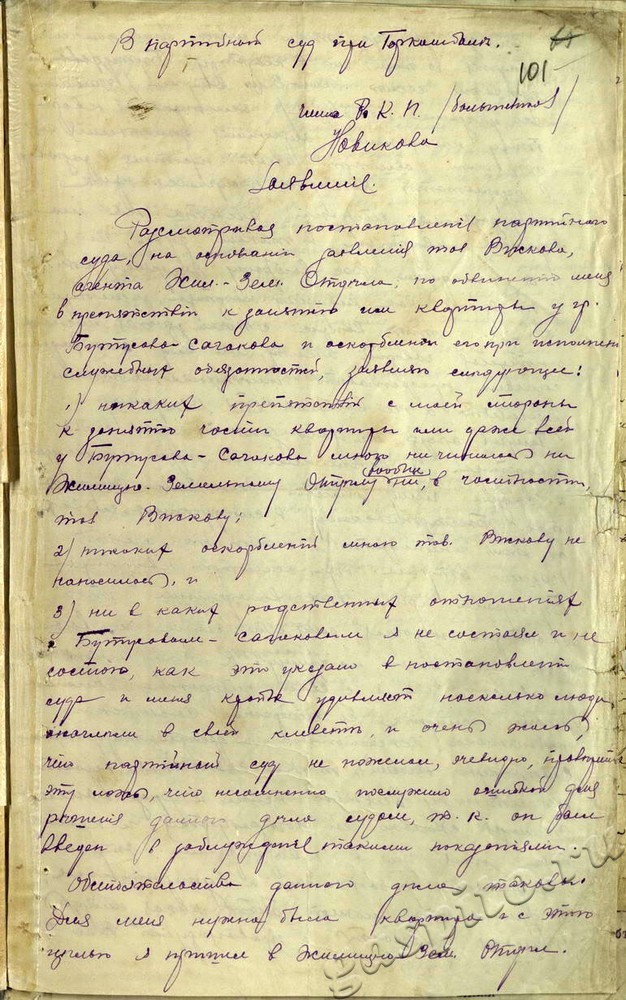 В партийный суд при Горкомбанъ.
101
члена Р. К. П. /большевиков/
Новикова
Заявление.
Разсматривая постановление партийного
суда, на основании заявления тов Вжкова,
агента Жил.-Зем. Отдела, по обвинению меня
в препятствии к занятию им квартиры у гр.
Бутусова-Сагакова и оскорблении его при исполнении
служебных обязанностей, заявляю следующее:
1) никаких препятствий с моей стороны
к занятию части квартиры или даже всей
у Бутусова-Сагакова мною ни чинилось ни
Жилищно-Земельному Отделу вообще, ни, в частности,
тов Вжкову;
2) никаких оскорблений мною тов. Вжкову не
наносилось, и
3) ни в каких родственных отношениях
с Бутусовым-Сагаковым я не состоял и не
состою, как это указано в постановлении
суда и меня крайне удивляет насколько люди
обнаглели в своей клевете, и очень жаль,
что партийный суд не пожелал, очевидно, проверить
эту ложь, что несомненно послужило ошибкой для
решения данного дела судом, т. к. он был
введен в заблуждение такими показаниями.
Обстоятельства данного дела таковы.
Для меня нужна была квартира и с этою
целью я пришел в Жилищно Зем. Отдел.